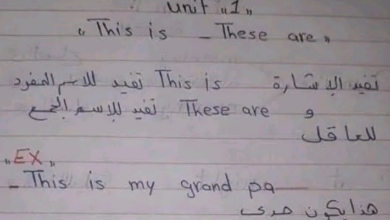 Unit "1"
"This is _ These are"
تفيد الإشارة This is تفيد للاسم المفرد
و These are تفيد للإسم الجمع
للعاقل
"EX"
_ This is my grand pa
هذا يكون جدى